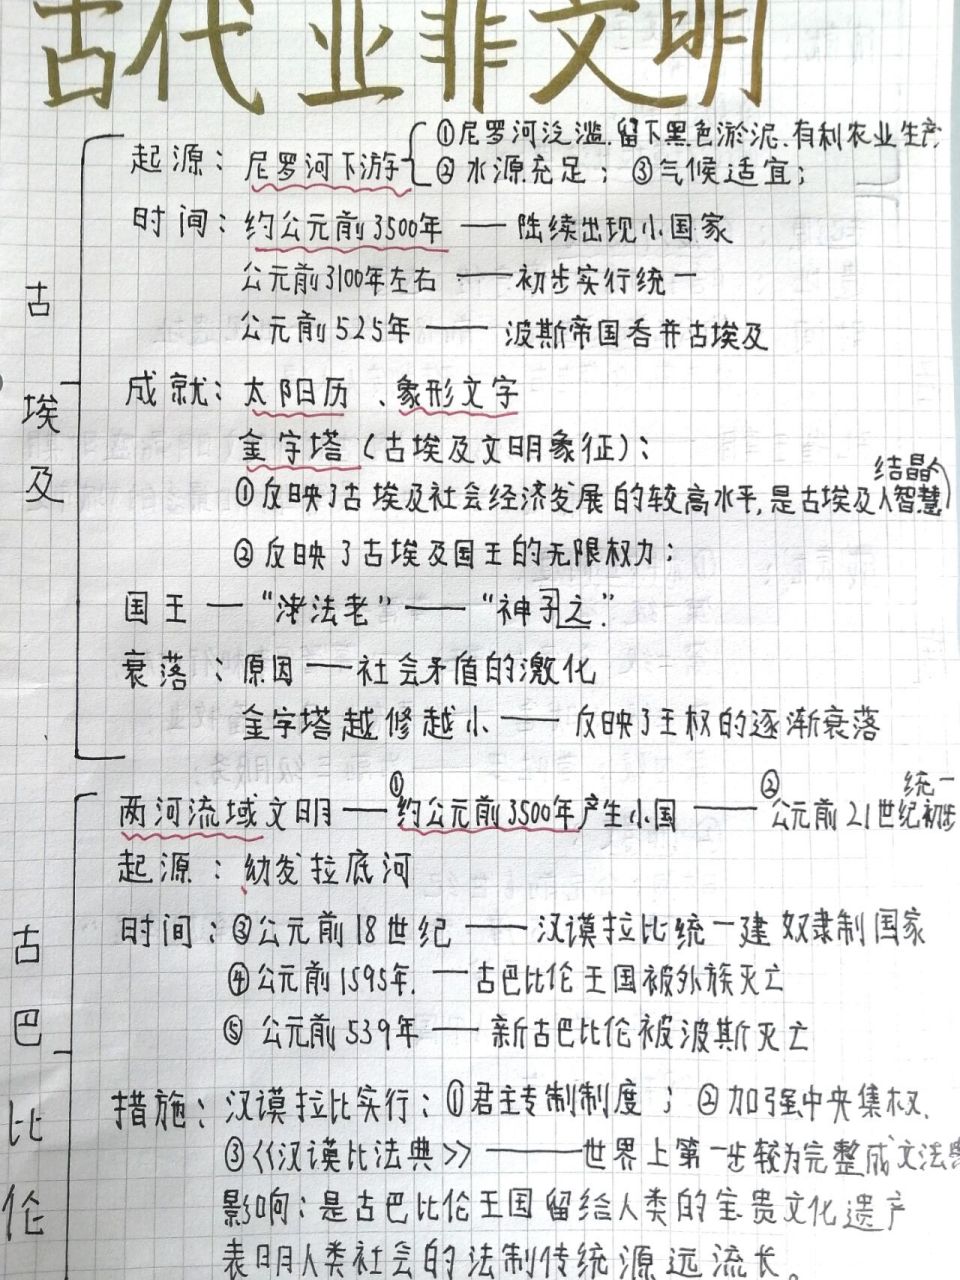 古代亚非文明
古埃及
起源：尼罗河下游
①尼罗河泛滥.留下黑色淤泥、有利农业生产
②水源充足；③气候适宜；
时间：约公元前3500年——陆续出现小国家
公元前3100年左右——初步实行统一
公元前525年——波斯帝国吞并古埃及
成就：太阳历、象形文字
金字塔（古埃及文明象征）：
①反映了古埃及社会经济发展的较高水平，是古埃及人智慧结晶
②反映了古埃及国王的无限权力；
国王—“法老”——“神之”
衰落：原因——社会矛盾的激化
金字塔越修越小——反映了王权的逐渐衰落
古巴比伦
两河流域文明——①约公元前3500年产生小国——②公元前21世纪初步统一
起源：幼发拉底河
时间：③公元前18世纪——汉谟拉比统一建奴隶制国家
④公元前1595年.—古巴比伦王国被外族灭亡
⑤公元前539年——新古巴比伦被波斯灭亡
措施：汉谟拉比实行：①君主专制制度；②加强中央集权.
③《汉谟比法典》——世界上第一步较为完整成文法典
影响：是古巴比伦王国留给人类的宝贵文化遗产
表明人类社会的法制传统源远流长。